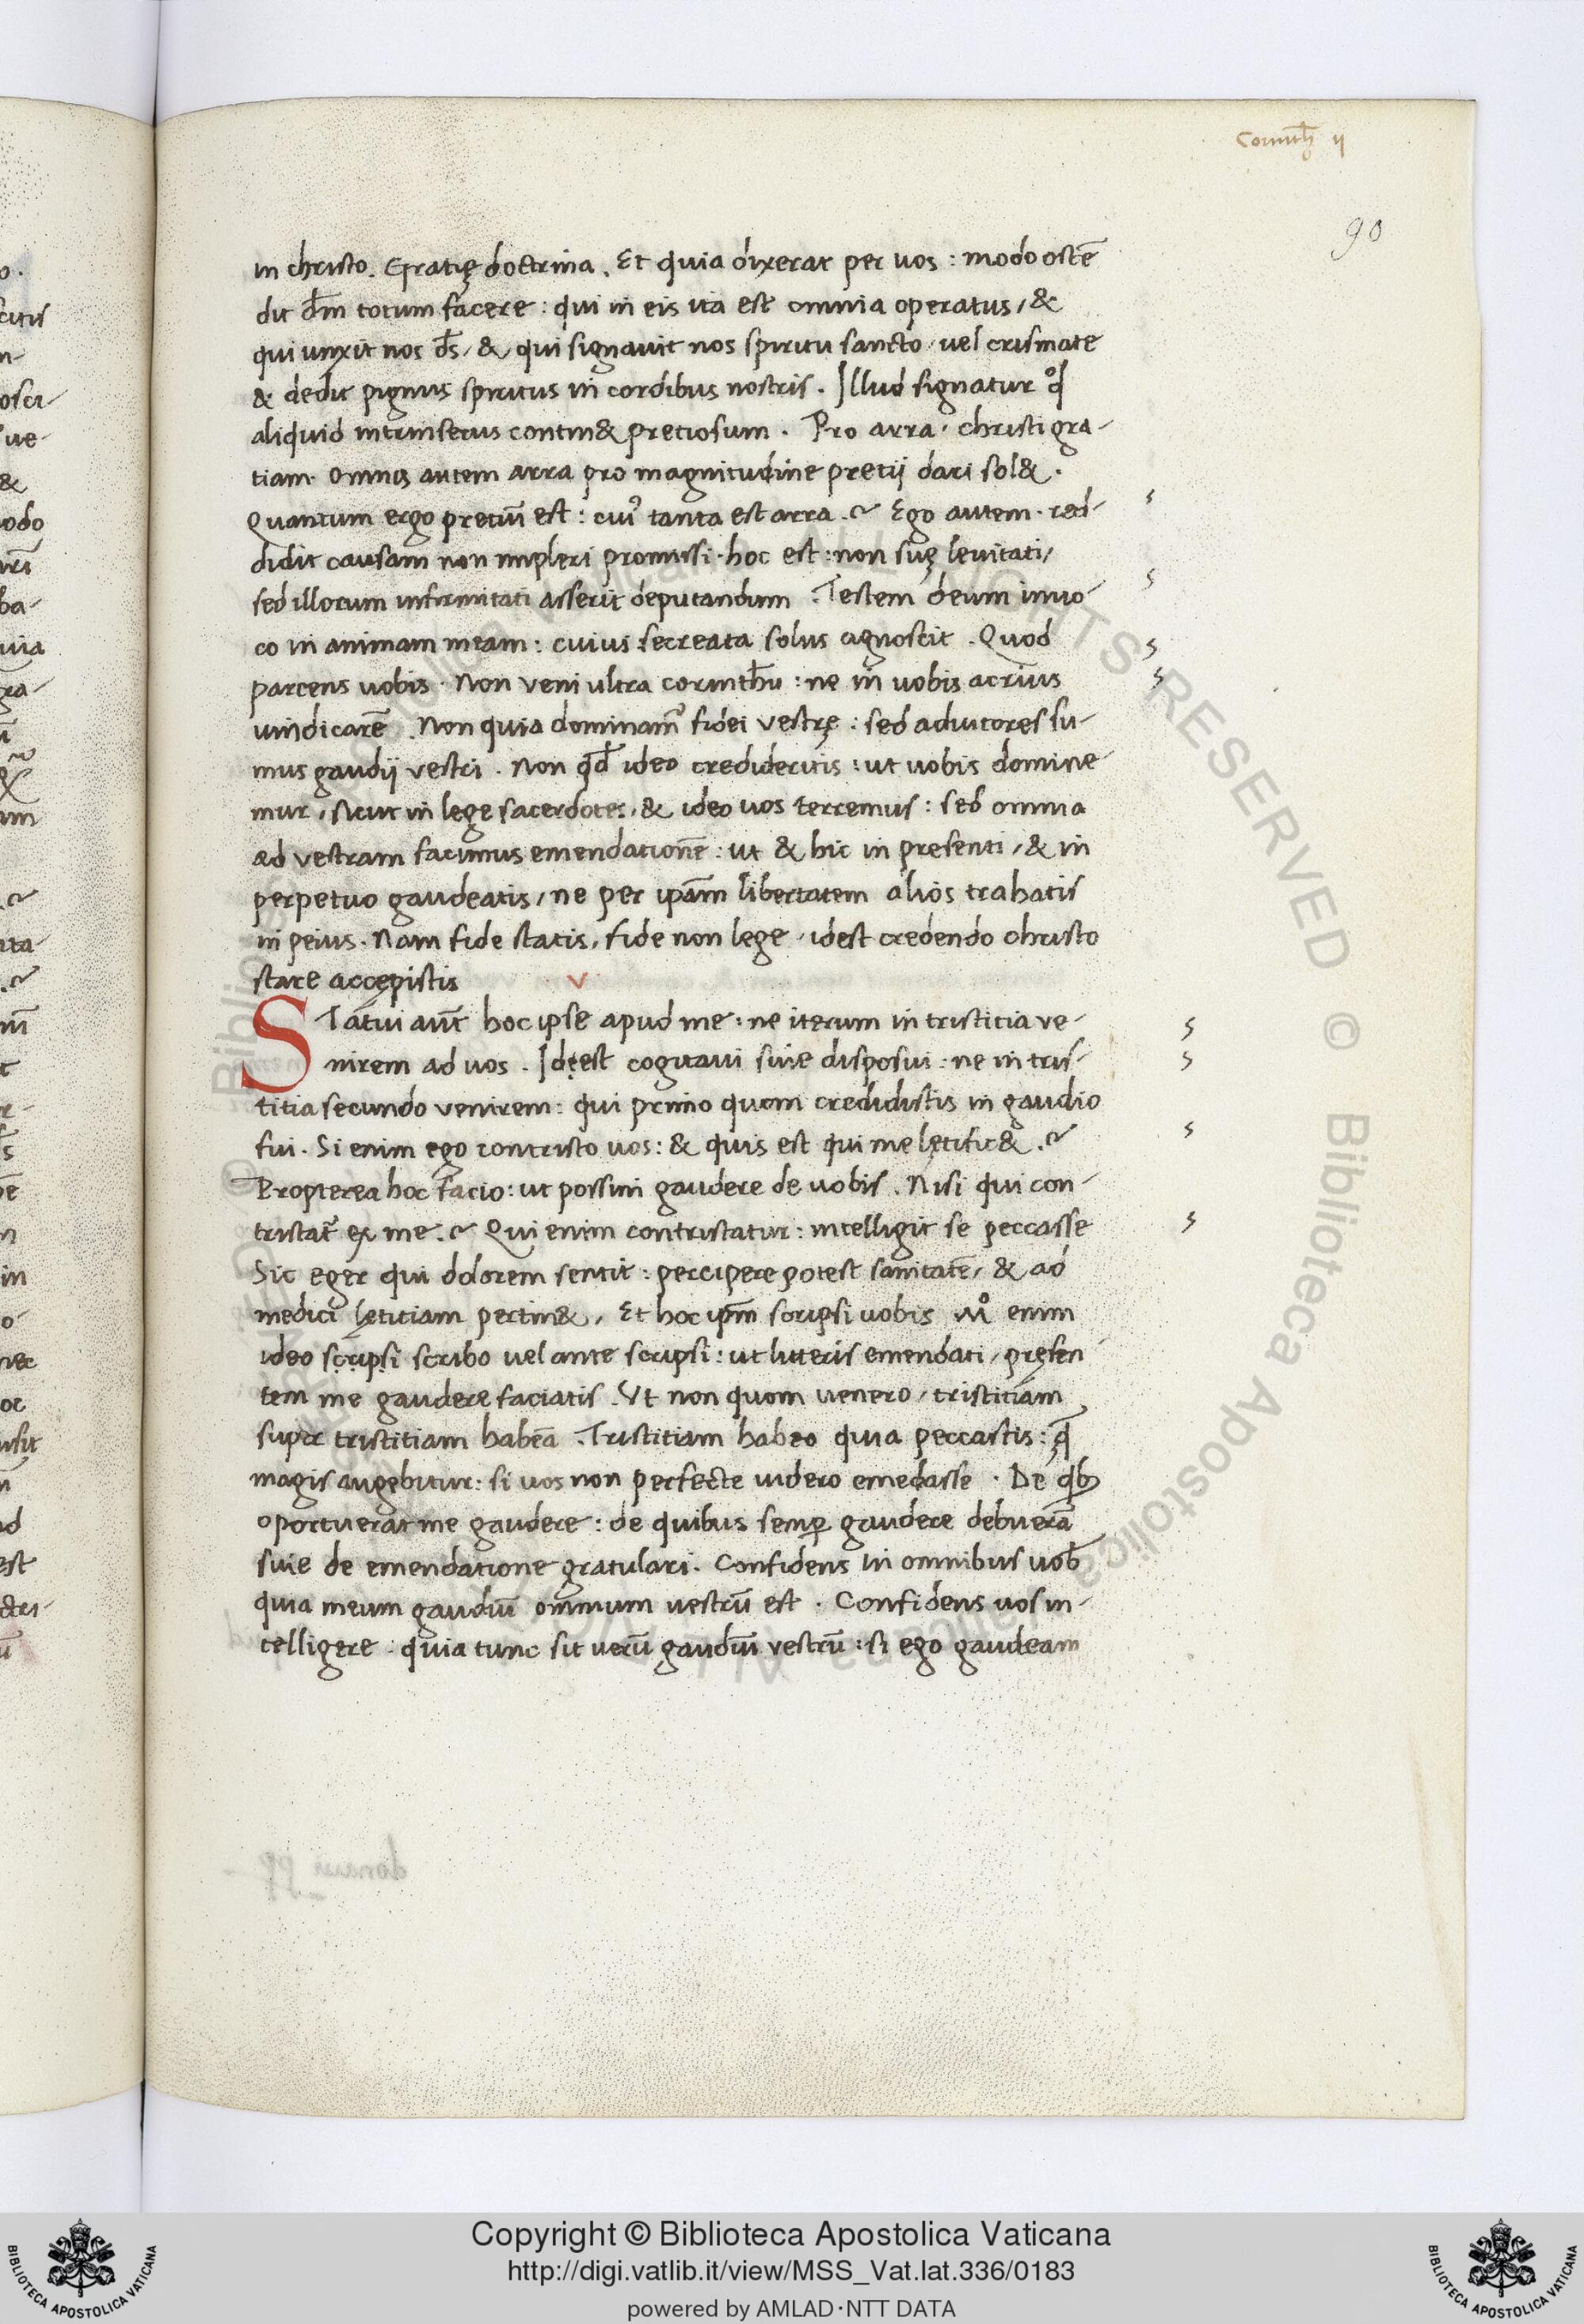 Corinth̄ ij
90
in christo. Gratię doctrina. Et quia dixerat per uos: modo ostē
dit dm̄ totum facere: qui in eis ita est omnia operatus, &
qui unxit nos ds̄, & qui signauit nos spiritu sancto, uel crismate
& dedit pignus spiritus in cordibus nostris. Illud signatur qͦd
aliquid intrinsecus contin& preciosum. Pro arra, christi gra-
tiam. Omnis autem arra pro magnitudine pretij dari sol&.
Quantum ergo pretiū est: cuiꝰ tanta est arra.~ Ego autem. red-
didit causam non impleri promissi. hoc est: non suę leuitati,
sed illorum infirmitati asserit deputandum. Testem deum inuo-
co in animam meam: cuius secreata solus agnoscit. Quod
parcens uobis. Non veni ultra corinthū: ne in uobis acrius
uindicarē. Non quia dominamꝰ fidei vestrę: sed adiutores su-
mus gaudij vestri. Non qd̄ ideo credideritis: ut uobis domine-
mur, sicut in lege sacerdotes, & ideo uos terremus: sed omnia
ad vestram facimus emendationē: ut & hic in presenti, & in
perpetuo gaudeatis, ne per ipām libertatem alios trahatis
in peius. Nam fide statis, fide non lege, idest credendo christo
stare accępistis
V
STatui aut̄ hoc ipse apud me: ne iterum in tristicia ve-
nirem ad uos. Idęest cogitaui siue disposui: ne in tris-
titia secundo venirem: qui primo quom credidistis in gaudio
fui. Si enim ego contristo uos: & quis est qui me lętific&.~
Propterea hoc facio: ut possim gaudere de uobis. Nisi qui con-
tristat̄ ex me.~ Qui enim contristatur: intelligit se peccasse
Sic eger qui dolorem sentit: percipere potest sanitatē, & ad
medici lętitiam pertin&. Et hoc ipm̄ scripsi uobis Nͦ enim
ideo scripsi scribo uel ante scripsi: ut litteris emendati, pręsen
tem me gaudere faciatis. Vt non quom uenero, tristiciam
super tristitiam habeā. Tristitiam habeo quia peccastis: q̄
magis augebitur: si uos non perfecte uidero emēdasse. De qb
oportuerat me gaudere: de quibus semꝑ gaudere debuerā
siue de emendatione gratulari. Confidens in omnibus uob̄
quia meum gaudiū omnium uestrū est. Confidens uos in-
telligere: quia tunc sit uerū gaudiū vestrū: si ego gaudeam
© Biblioteca Apostolica Vaticana ALL RIGHTS RESERVED
© Biblioteca Apostolica Vaticana
Copyright © Biblioteca Apostolica Vaticana
http://digi.vatlib.it/view/MSS_Vat.lat.336/0183
powered by AMLAD·NTT DATA
BIBLIOTECA APOSTOLICA VATICANA
BIBLIOTECA APOSTOLICA VATICANA